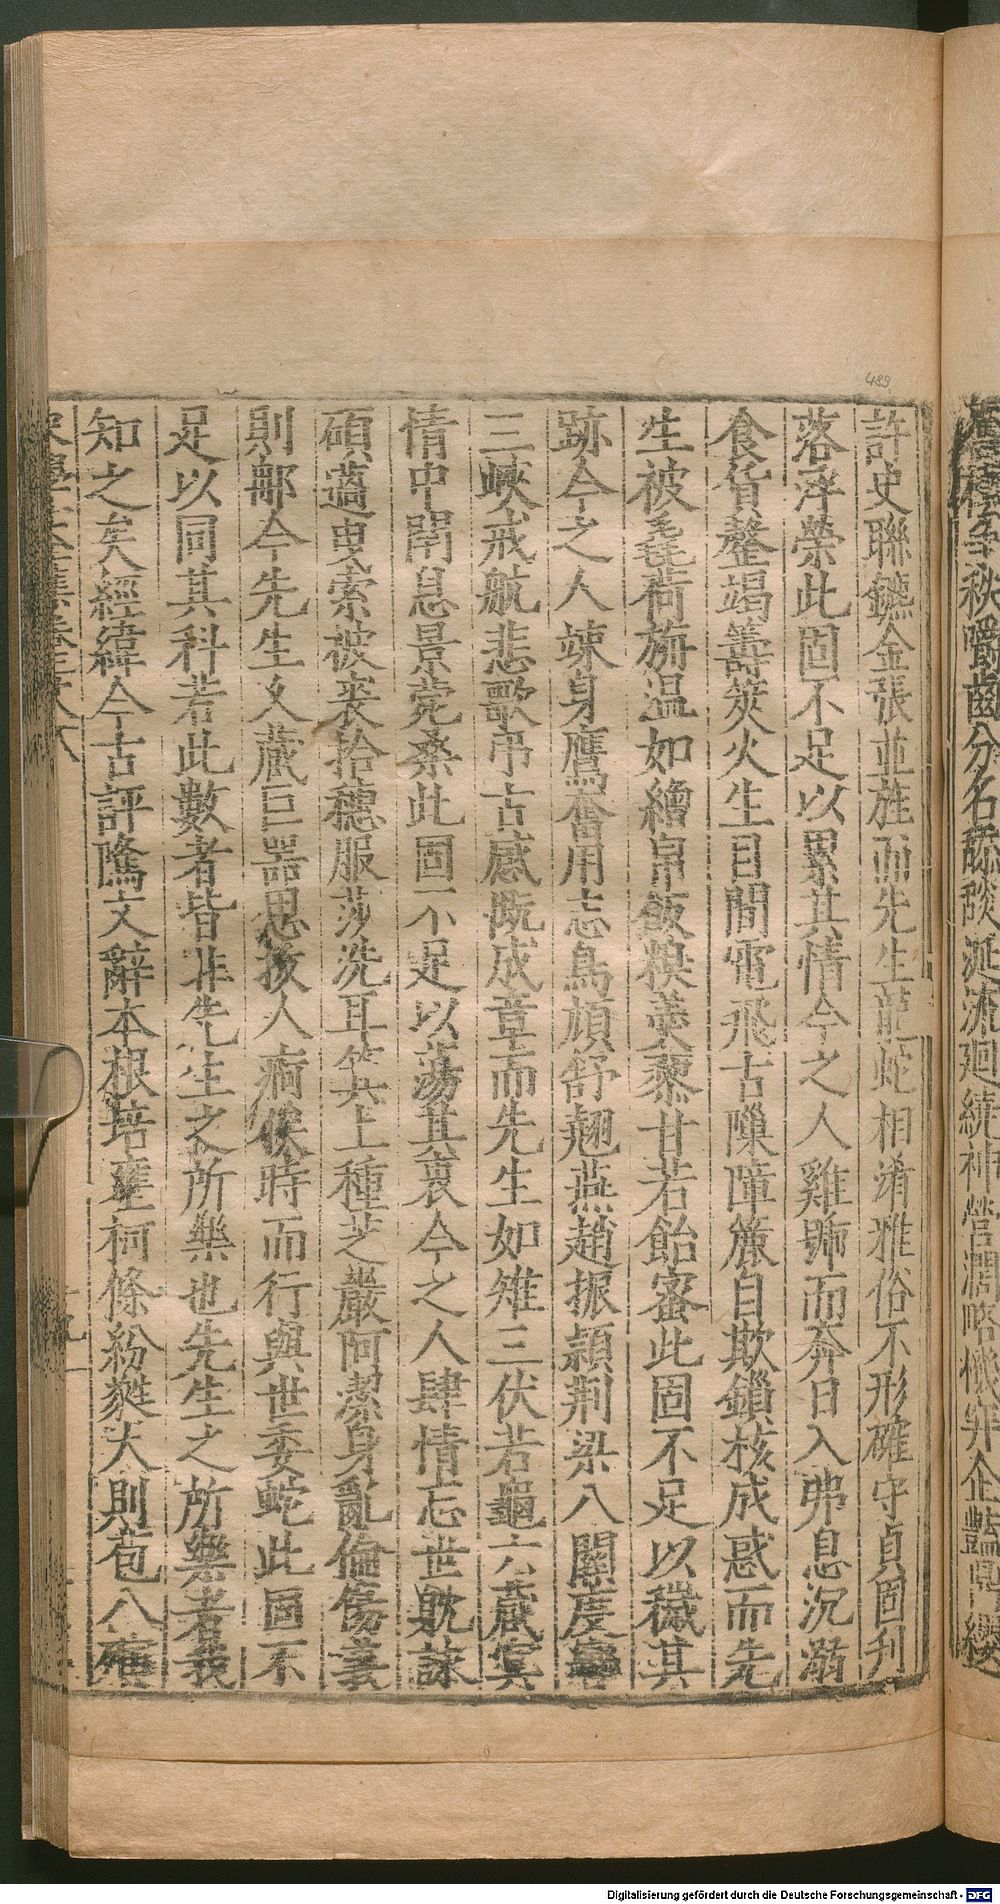 許史聯鑣金張並旌而先生龍蛇相淆雅俗不形確守貞固刋
落浮榮此固不足以累其情今之人雞號而奔日入弗息沉溺
食貨罄竭籌筴火生目間電飛古隟障簾自欺鎻核成惑而先
生被毳荷旃温如繒帛飯糗羹藜甘若飴蜜此固不足以穢其
跡今之人竦身鷹奮用志鳥頏舒翹燕趙振頴荆梁八關度
三峽戒航悲歌弔古感旣成章而先生如雉三伏若龜六蔵寘
情中閉息景菀桑此固不足以蕩其衷今之人肆情忘世躭謀
碩薖曳索被裘拾穗服莎洗耳箕上種芝巖阿潔身亂倫傷義
則鄙今先生文蔵巨器思拔人痾俟時而行與世委蛇此固不
足以同其科若此數者皆非先生之所樂也先生之所樂者我
知之矣經緯今古評隲文辭本根培壅柯條紛蕤大則苞八
四四九
Digitalisierung gefördert durch die Deutsche Forschungsgemeinschaft - DFG